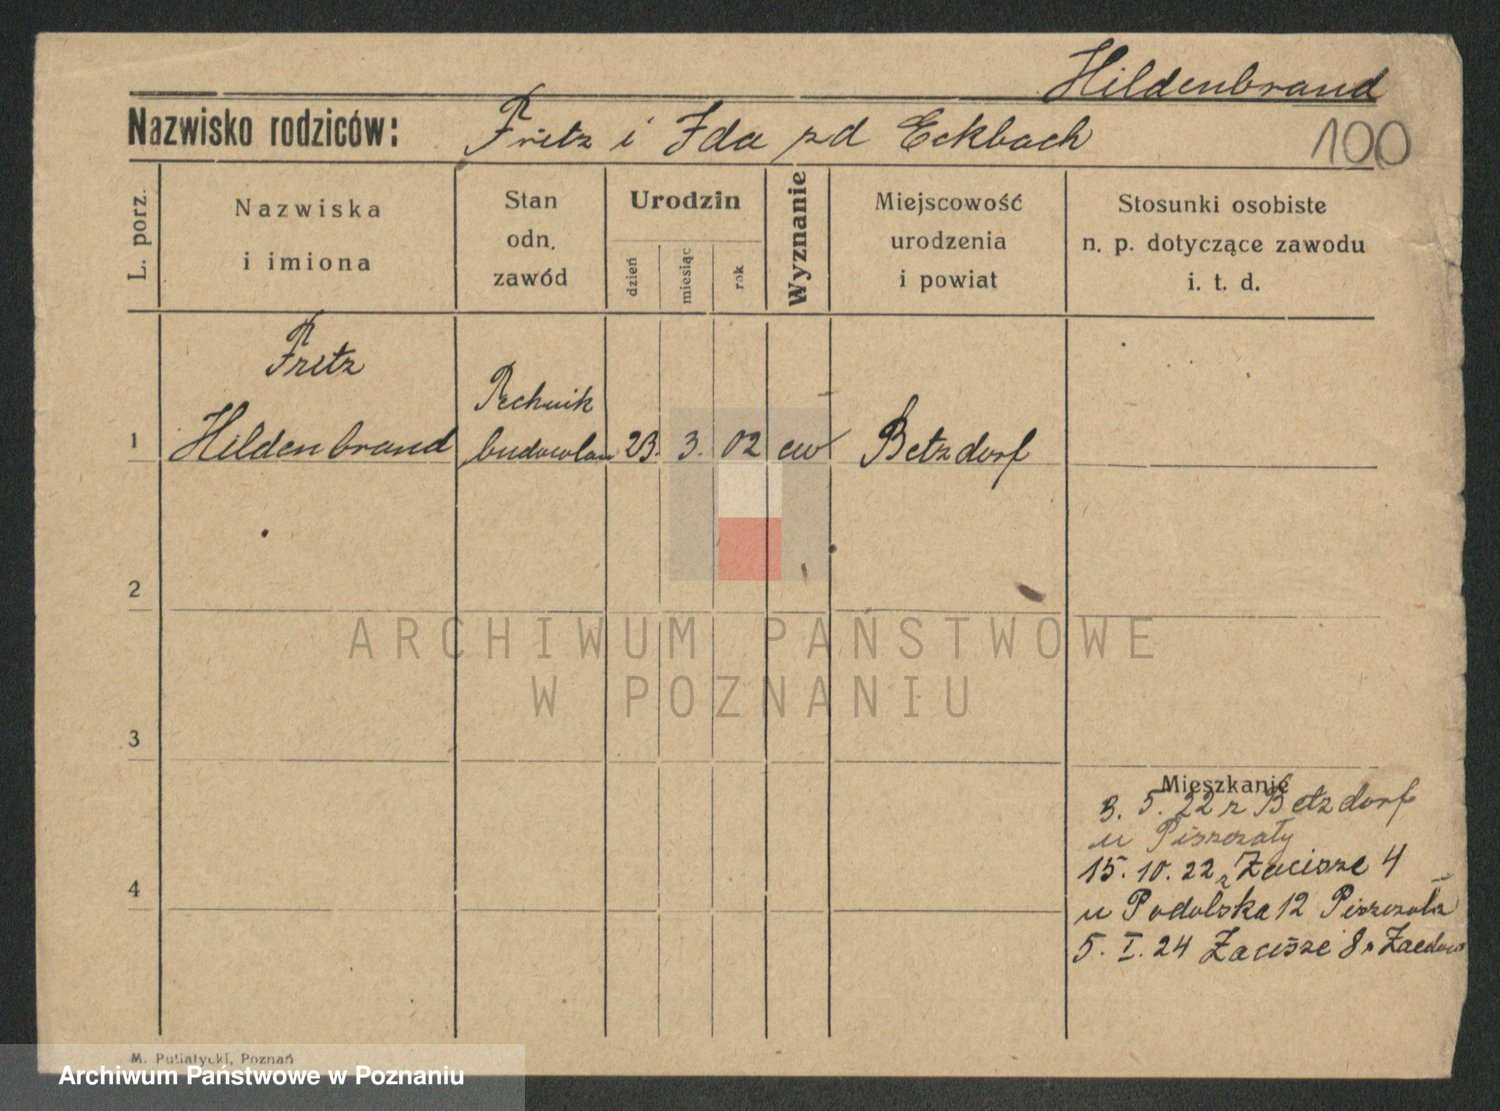 Hildenbrand
Nazwisko rodziców: Fritz i Ida zd Eckbach
100
L. porz.
Nazwiska
i imiona
Stan
odn.
zawód
Urodzin
dzień
miesiąc
rok
Wyznanie
Miejscowość
urodzenia
i powiat
Stosunki osobiste
n. p. dotyczące zawodu
i. t. d.
Fritz
Technik
1 Hildenbrand budowlan 23. 3. 02 ew Betzdorf
2
ARCHIWUM PAŃSTWOWE
W POZNANIU
3
Mieszkanie
3. 5. 22 z Betzdorf
u
15. 10. 22 Zacisze 4
4
u Podolska 12
5. I. 24 Zacisze 8
M. Putiatycki, Poznań
Archiwum Państwowe w Poznaniu